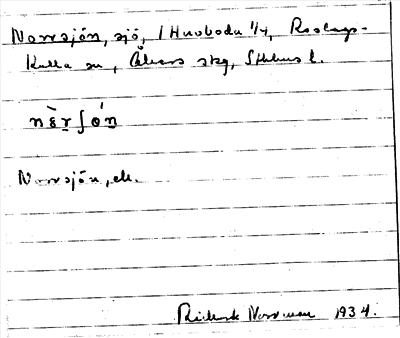 Norrsjön, sjö, i Husboda 1/4, Roslags-
Kulla sn, Åkers skg, Sthlms l.
nèrʃón
Norrsjön, ek.
Rickard Norrman 1934.